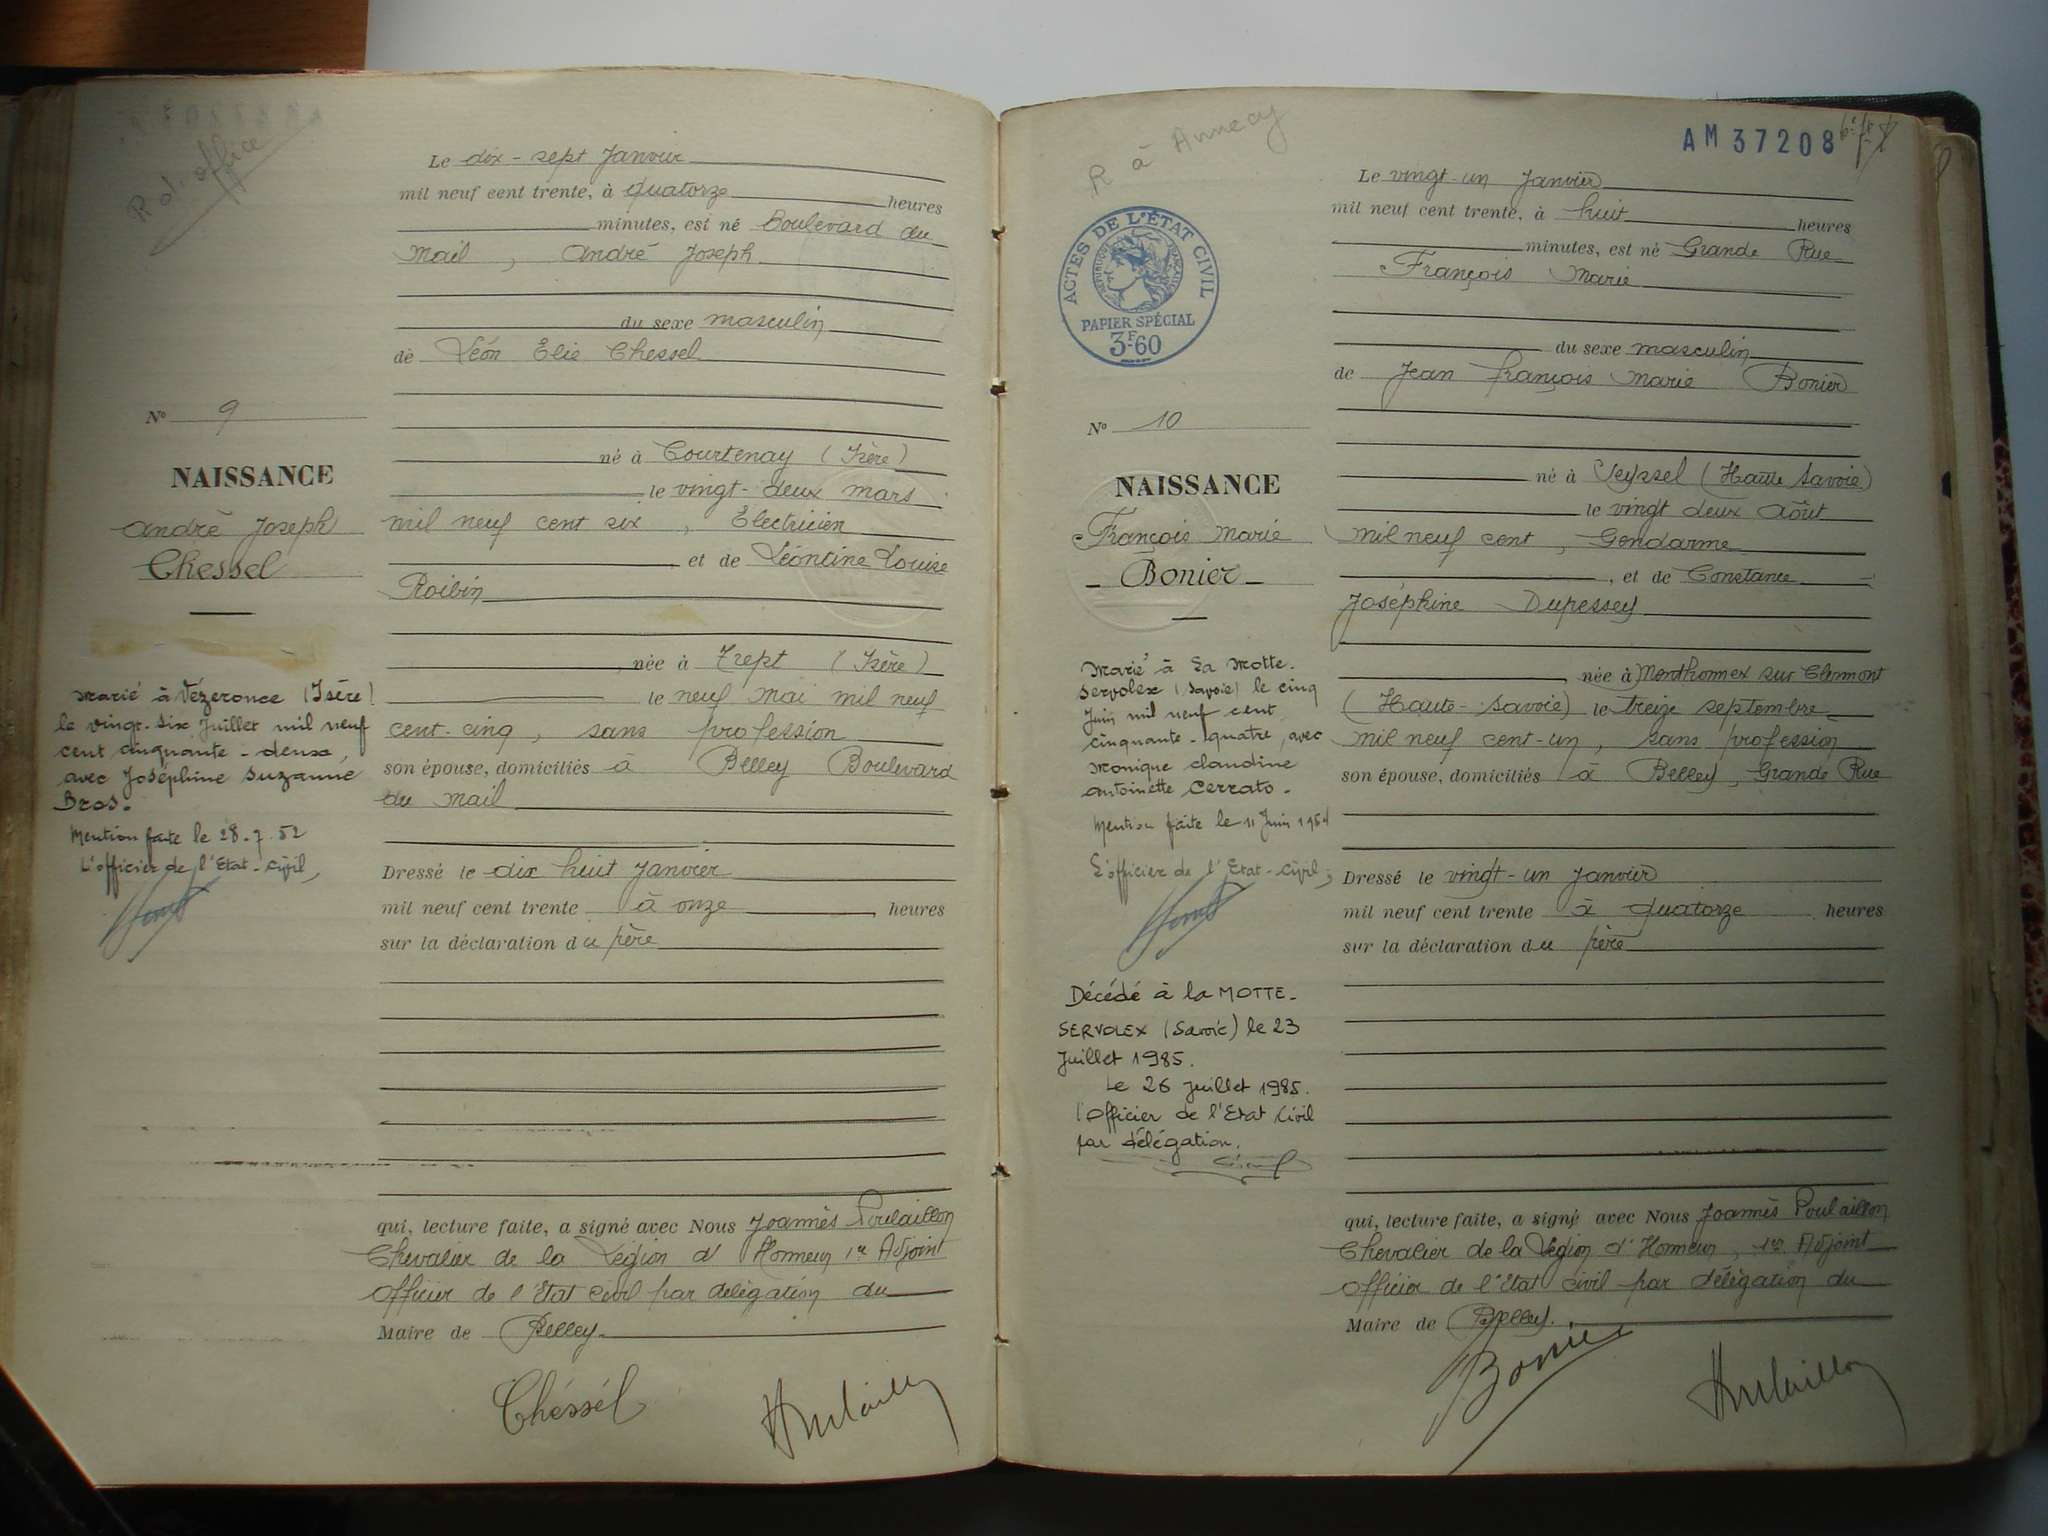 R d'office
Le dix-sept Janvier
mil neuf cent trente, à quatorze heures
minutes, est né Boulevard du
Mail, André Joseph
du sexe masculin
de Léon Élie Chessel
né à Courtenay (Isère)
le vingt-deux mars
mil neuf cent six, Électricien
et de Léontine Louise
Roibin
née à Trept (Isère)
le neuf Mai mil neuf
cent-cinq, sans profession
son épouse, domiciliés à Belley Boulevard
du Mail
Dressé le dix huit Janvier
mil neuf cent trente à onze heures
sur la déclaration du père
qui, lecture faite, a signé avec Nous Joannès Poulaillon
Chevalier de la Légion d'Honneur 1er Adjoint
Officier de l'État Civil par délégation du
Maire de Belley
Chéssél
Poulaillon
N° 9
NAISSANCE
André Joseph
Chessel
Marié à Vézeronce (Isère)
le vingt-six Juillet mil neuf
cent cinquante-deux,
avec Joséphine Suzanne
Bros.
Mention faite le 28.7.52
L'officier de l'Etat-Civil,
R à Annecy
AM 37208
ACTES DE L'ÉTAT CIVIL
RÉPUBLIQUE FRANÇAISE
PAPIER SPÉCIAL
3F60
Le vingt-un Janvier
mil neuf cent trente, à huit heures
minutes, est né Grande Rue
François Marie
du sexe masculin
de Jean François Marie Bonier
né à Seyssel (Haute Savoie)
le vingt deux Août
mil neuf cent, Gendarme
, et de Constance
Joséphine Dupessey
née à Menthonnex sur Clermont
(Haute-Savoie) le treize septembre
mil neuf cent-un, sans profession
son épouse, domiciliés à Belley, Grande Rue
Dressé le vingt-un Janvier
mil neuf cent trente à quatorze heures
sur la déclaration du père
qui, lecture faite, a signé avec Nous Joannès Poulaillon
Chevalier de la Légion d'Honneur, 1er Adjoint
Officier de l'État Civil par délégation du
Maire de Belley.
Bonier
Poulaillon
N° 10
NAISSANCE
François Marie
- Bonier -
Marié à La Motte-
Servolex (Savoie) le cinq
Juin mil neuf cent
cinquante-quatre, avec
Monique Claudine
Antoinette Cerrato.
Mention faite le 11 Juin 1954
L'officier de l'Etat-Civil,
Décédé à la MOTTE-
SERVOLEX (Savoie) le 23
Juillet 1985.
Le 26 Juillet 1985.
l'Officier de l'Etat Civil
par délégation.